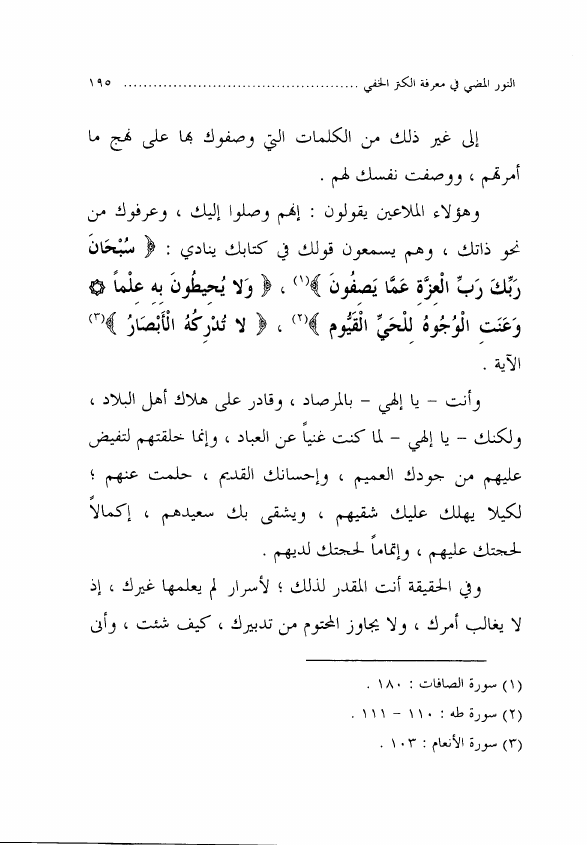 النور المضي في معرفة الكتر الخفي ................................................ ١٩٥
إلى غير ذلك من الكلمات التي وصفوك بها على نهج ما
أمرتهم ، ووصفت نفسك لهم .
وهؤلاء الملاعين يقولون : إنهم وصلوا إليك ، وعرفوك من
نحو ذاتك ، وهم يسمعون قولك في كتابك ينادي : ﴿ سُبْحَانَ
رَبِّكَ رَبِّ الْعِزَّةِ عَمَّا يَصِفُونَ ﴾(١) ، ﴿ وَلَا يُحِيطُونَ بِهِ عِلْماً ۞
وَعَنَتِ الْوُجُوهُ لِلْحَيِّ الْقَيُّومِ ﴾(٢) ، ﴿ لَا تُدْرِكُهُ الْأَبْصَارُ ﴾(٣)
الآية .
وأنت – يا إلهي – بالمرصاد ، وقادر على هلاك أهل البلاد ،
ولكنك – يا إلهي – لما كنت غنياً عن العباد ، وإنما خلقتهم لتفيض
عليهم من جودك العميم ، وإحسانك القديم ، حلمت عنهم ؛
لكيلا يهلك عليك شقيهم ، ويشقى بك سعيدهم ، إكمالاً
لحجتك عليهم ، وإتماماً لحجتك لديهم .
وفي الحقيقة أنت المقدر لذلك ؛ لأسرار لم يعلمها غيرك ، إذ
لا يغالب أمرك ، ولا يجاوز المحتوم من تدبيرك ، كيف شئت ، وأنى
(١) سورة الصافات : ١٨٠ .
(٢) سورة طه : ١١٠ – ١١١ .
(٣) سورة الأنعام : ١٠٣ .